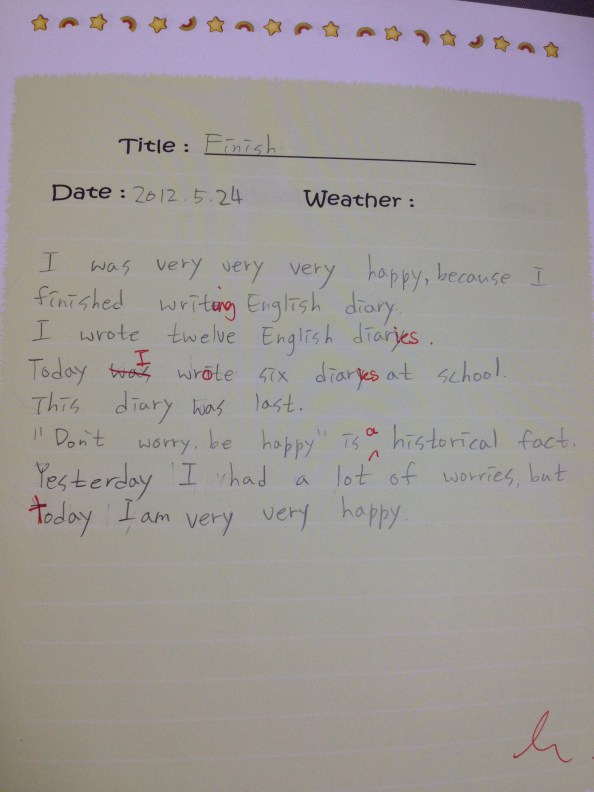 Title : Finish
Date : 2012.5.24 Weather :
I was very very very happy, because I
finished writing English diary.
I wrote twelve English diaries.
Today was I wrote six diaries at school.
This diary was last.
"Don't worry. be happy" is a historical fact.
Yesterday I had a lot of worries, but
today I am very very happy.